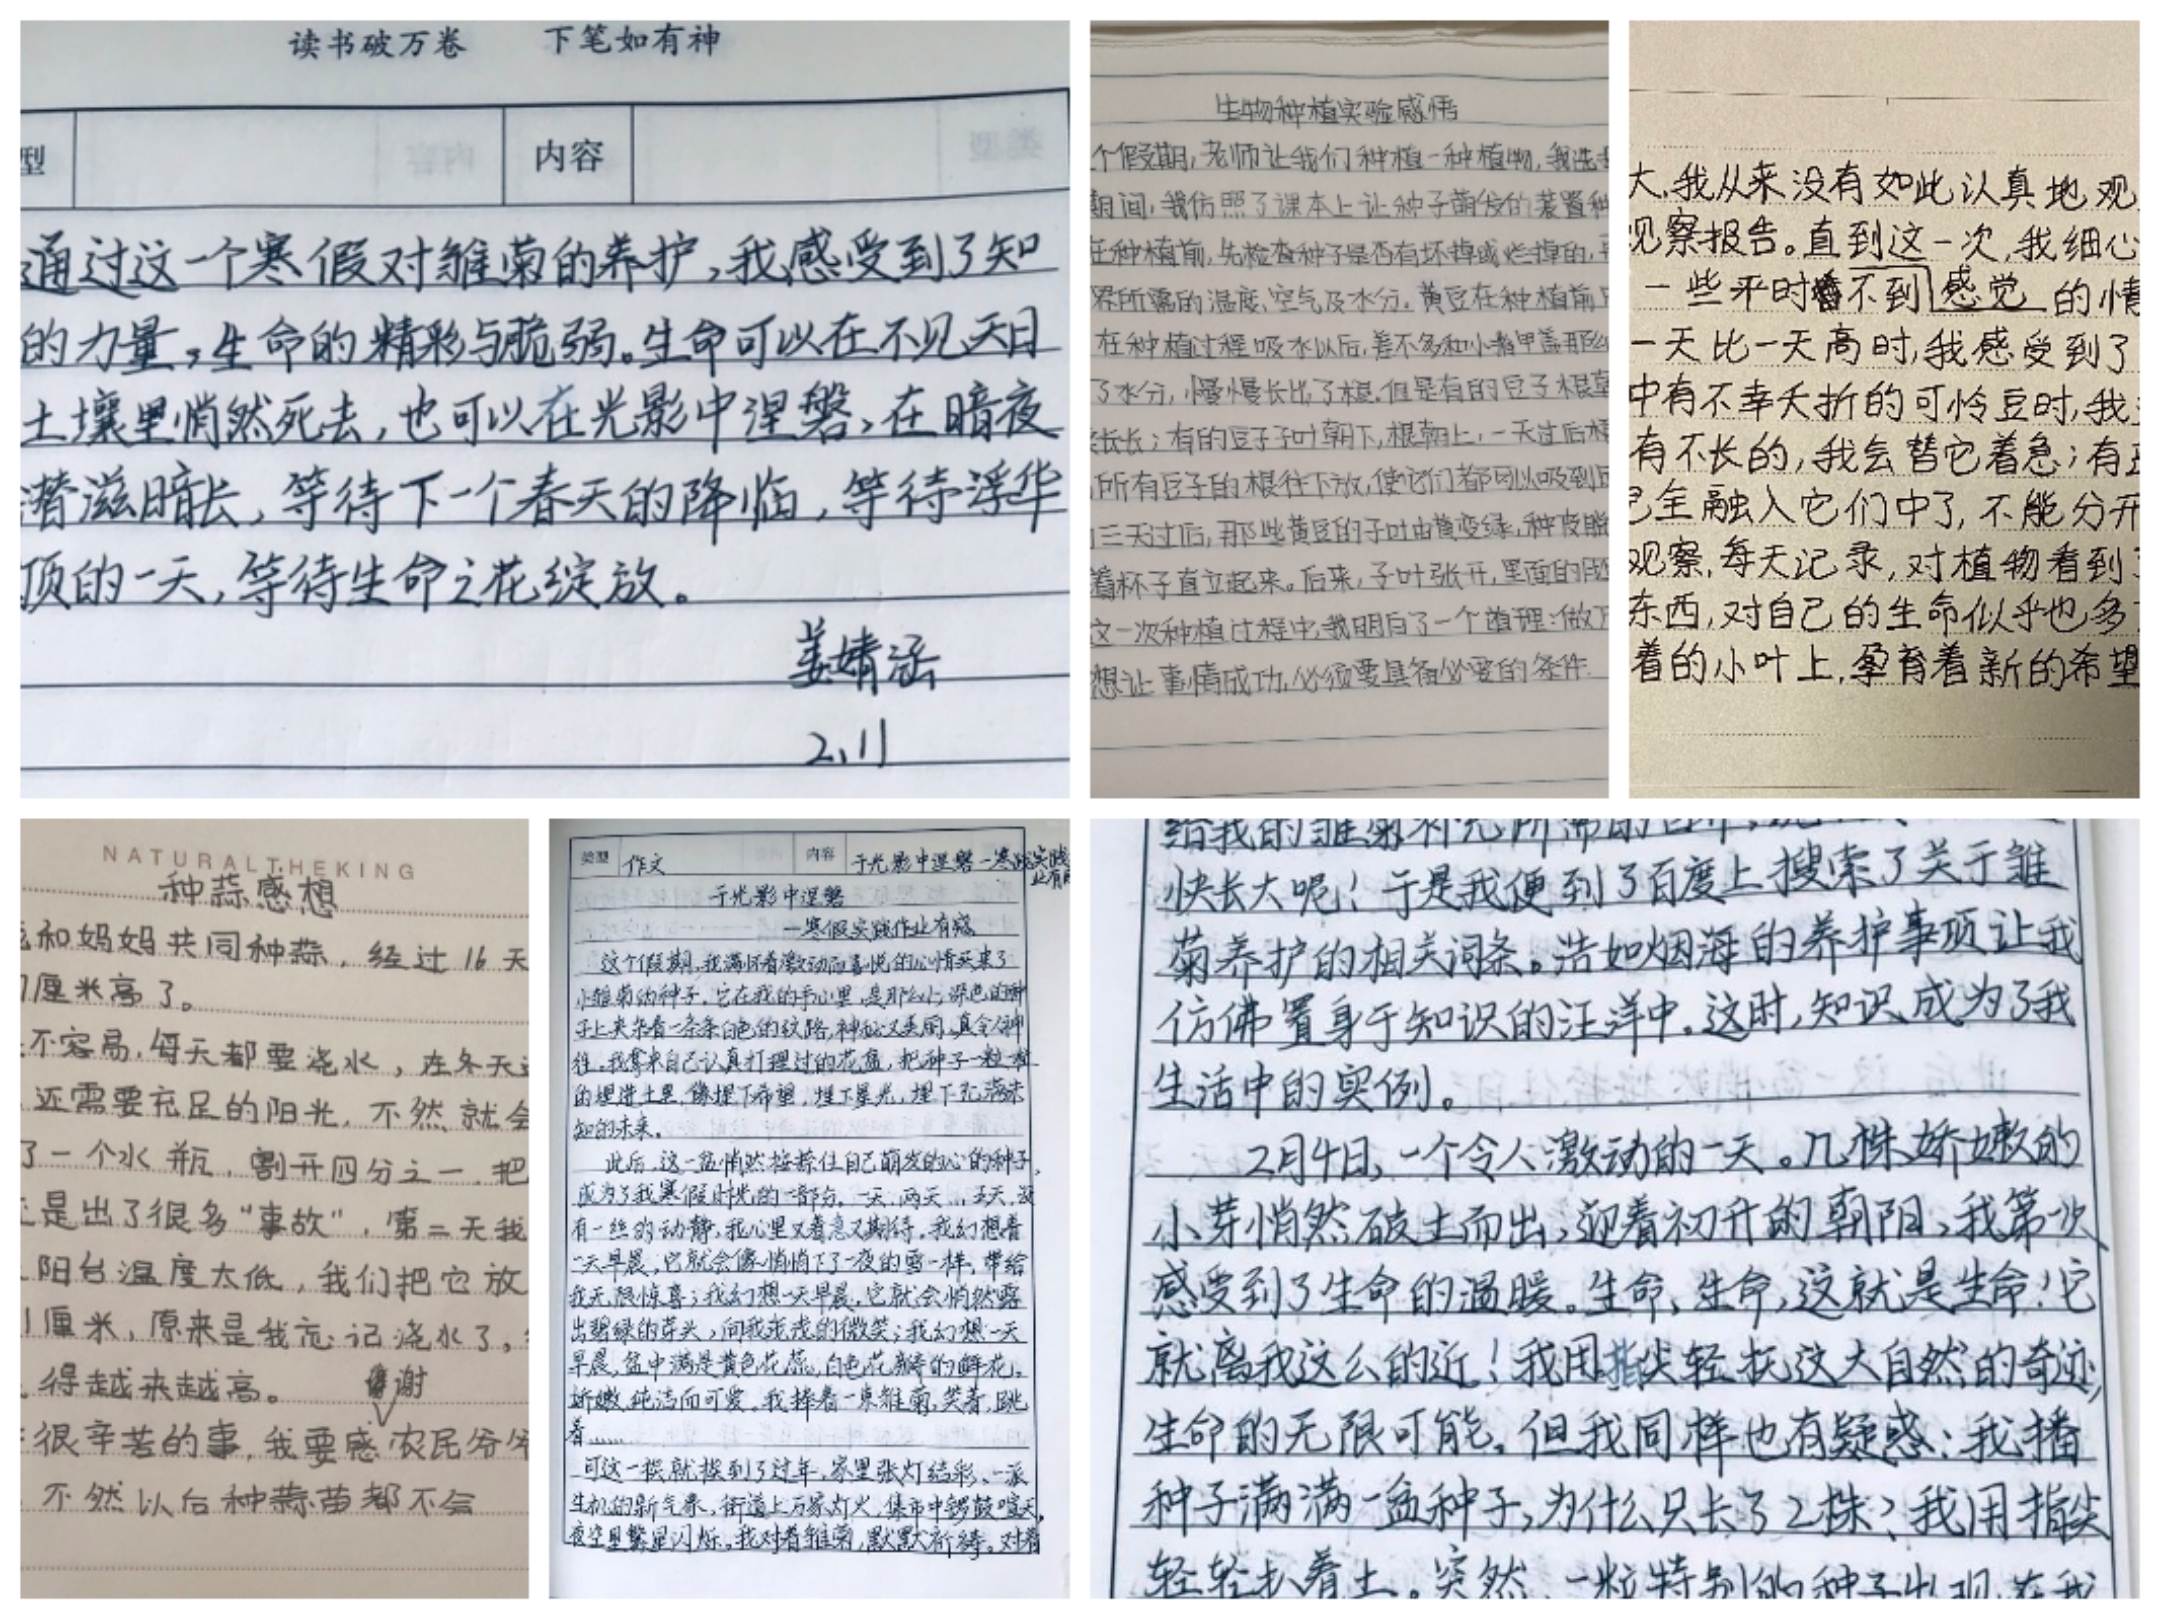 读书破万卷 下笔如有神
型 内容
通过这一个寒假对雏菊的养护,我感受到了知
的力量,生命的精彩与脆弱。生命可以在不见天日
土壤里悄然死去,也可以在光影中涅磐,在暗夜
潜滋暗长,等待下一个春天的降临,等待浮华
顶的一天,等待生命之花绽放。
姜婧涵
2.11
生物种植实验感悟
个假期,老师让我们种植一种植物,我选
期间,我仿照了课本上让种子萌发的装置种
在种植前,先检查种子是否有坏掉或烂掉的,
界所需的温度、空气及水分。黄豆在种植前
在种植过程吸水以后,差不多和小指甲盖那么
了水分,慢慢长出了根。但是有的豆子根朝
长长;有的豆子子叶朝下,根朝上,一天过后根
所有豆子的根往下放,使它们都可以吸到
三天过后,那些黄豆的子叶由黄变绿,种皮脱
着杯子直立起来。后来,子叶张开,里面的
这一次种植过程中,我明白了一个道理:做
想让事情成功,必须要具备必要的条件.
大,我从来没有如此认真地观
观察报告。直到这一次,我细心
一些平时不到感觉的情
一天比一天高时,我感受到了
中有不幸夭折的可怜豆时,我
有不长的,我会替它着急;有
已全融入它们中了,不能分开
观察,每天记录,对植物看到
东西,对自己的生命似乎也多
着的小叶上,孕育着新的希望
NATURALTHEKING
种蒜感想
和妈妈共同种蒜,经过16天
厘米高了。
不容易,每天都要浇水,在冬天
还需要充足的阳光,不然就会
了一个水瓶,割开四分之一,把
是出了很多“事故”,第二天我
阳台温度太低,我们把它放
1厘米,原来是我忘记浇水了。
得越来越高。
谢
很辛苦的事,我要感农民爷爷
不然以后种蒜苗都不会
类型 作文 内容 于光影中涅磐—寒假实践
业有感
于光影中涅磐
—寒假实践作业有感
这个假期,我满怀着激动而喜悦的心情买来了
小雏菊的种子。它在我的手心里,是那么小,深色的种
子上夹杂着一条条白色的纹路,神秘又美丽,真令人神
往。我拿来自己认真打理过的花盆,把种子一粒粒
的埋进土里,像埋下希望,埋下星光,埋下充满未
知的未来。
此后,这一盆悄然按捺住自己萌发的心的种子,
成为了我寒假时光的一部分。一天,两天...五天,没
有一丝的动静,我心里又着急又期待。我幻想着
一天早晨,它就会像悄悄下了一夜的雪一样,带给
我无限惊喜;我幻想一天早晨,它就会悄然露
出碧绿的芽头,向我浅浅的微笑;我幻想一天
早晨,盆中满是黄色花蕊,白色花瓣的鲜花。
娇嫩,纯洁而可爱。我捧着一束雏菊,笑着,跳
着......
可这一摸就摸到了过年,家里张灯结彩、一派
生机的新气象,街道上万家灯火,集市中锣鼓喧天,
夜空里繁星闪烁。我对着雏菊,默默祈祷。对着
给我的雏菊补充所需的
快长大呢!于是我便到了百度上搜索了关于雏
菊养护的相关词条。浩如烟海的养护事项让我
仿佛置身于知识的汪洋中。这时,知识,成为了我
生活中的实例。
2月4日,一个令人激动的一天。几株娇嫩的
小芽悄然破土而出,迎着初升的朝阳,我第一次
感受到了生命的温暖。生命,生命,这就是生命!它
就离我这么的近!我用指尖轻抚这大自然的奇迹,
生命的无限可能。但我同样也有疑惑:我播
种子满满一盆种子,为什么只长了2株?我用指尖
轻轻扒着土。突然,一粒特别的种子出现在我